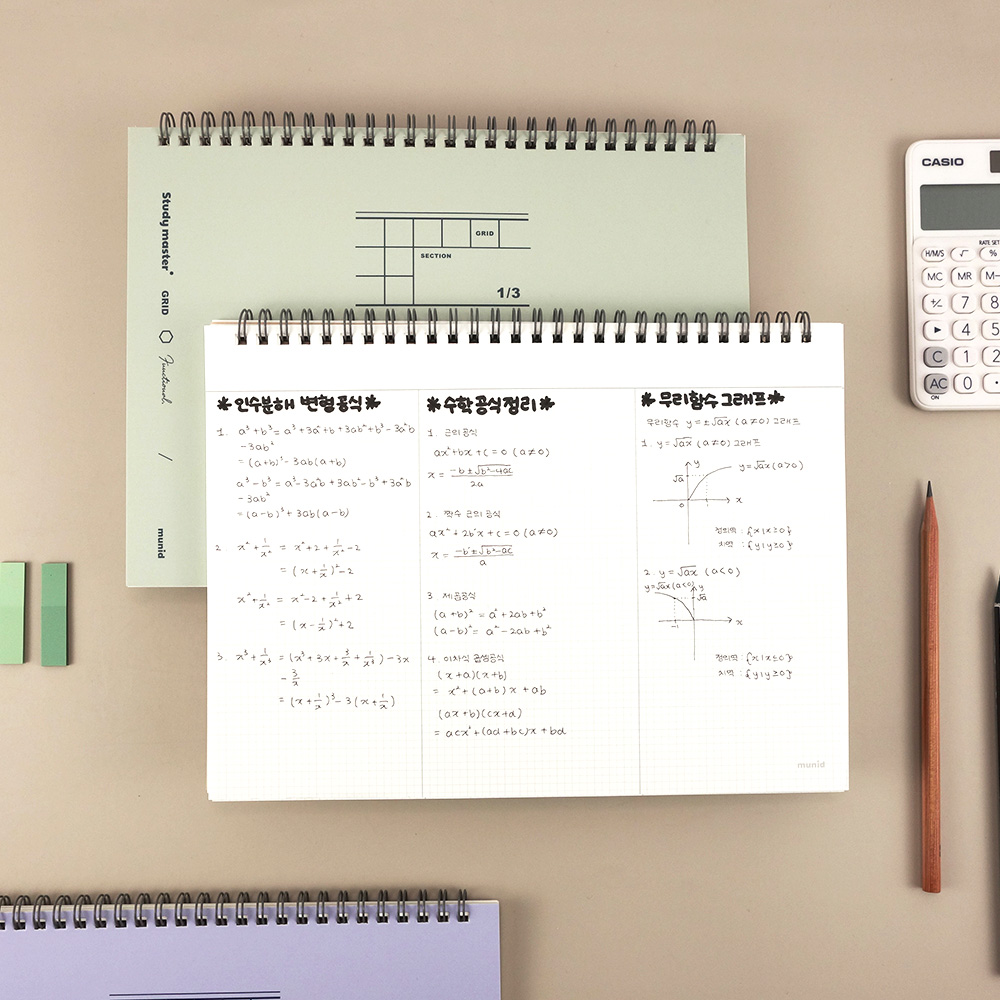 Study master
GRID
Functional.
/
munid
GRID
SECTION
1/3
CASIO
RATE SET
H/M/S √ %
MC MR M-
+/- 7 8
▶ 4 5
C 1 2
AC 0 ·
ON
*인수분해 변형공식*
1. a³+b³ = a³+3a²b+3ab²+b³-3a²b
-3ab²
= (a+b)³-3ab(a+b)
a³-b³ = a³-3a²b+3ab²-b³+3a²b
-3ab²
= (a-b)³+3ab(a-b)
2. x²+1/x² = x²+2+1/x²-2
= (x+1/x)²-2
x²+1/x² = x²-2+1/x²+2
= (x-1/x)²+2
3. x³+1/x³ = (x³+3x+3/x+1/x³)-3x
-3/x
= (x+1/x)³-3(x+1/x)
*수학공식정리*
1. 근의공식
ax²+bx+c=0 (a≠0)
x = -b±√b²-4ac/2a
2. 짝수 근의 공식
ax²+2b'x+c=0 (a≠0)
x = -b'±√b'²-ac/a
3. 제곱공식
(a+b)² = a²+2ab+b²
(a-b)² = a²-2ab+b²
4. 이차식 곱셈공식
(x+a)(x+b)
= x²+(a+b)x+ab
(ax+b)(cx+d)
= acx²+(ad+bc)x+bd
*무리함수 그래프*
무리함수 y=±√ax (a≠0) 그래프
1. y=√ax (a≠0) 그래프
y
y=√ax (a>0)
√a
x
0
1
정의역 : {x|x≥0}
치역 : {y|y≥0}
2. y=√ax (a<0)
y=√ax (a<0) y
√a
x
-1
정의역 : {x|x≤0}
치역 : {y|y≥0}
munid